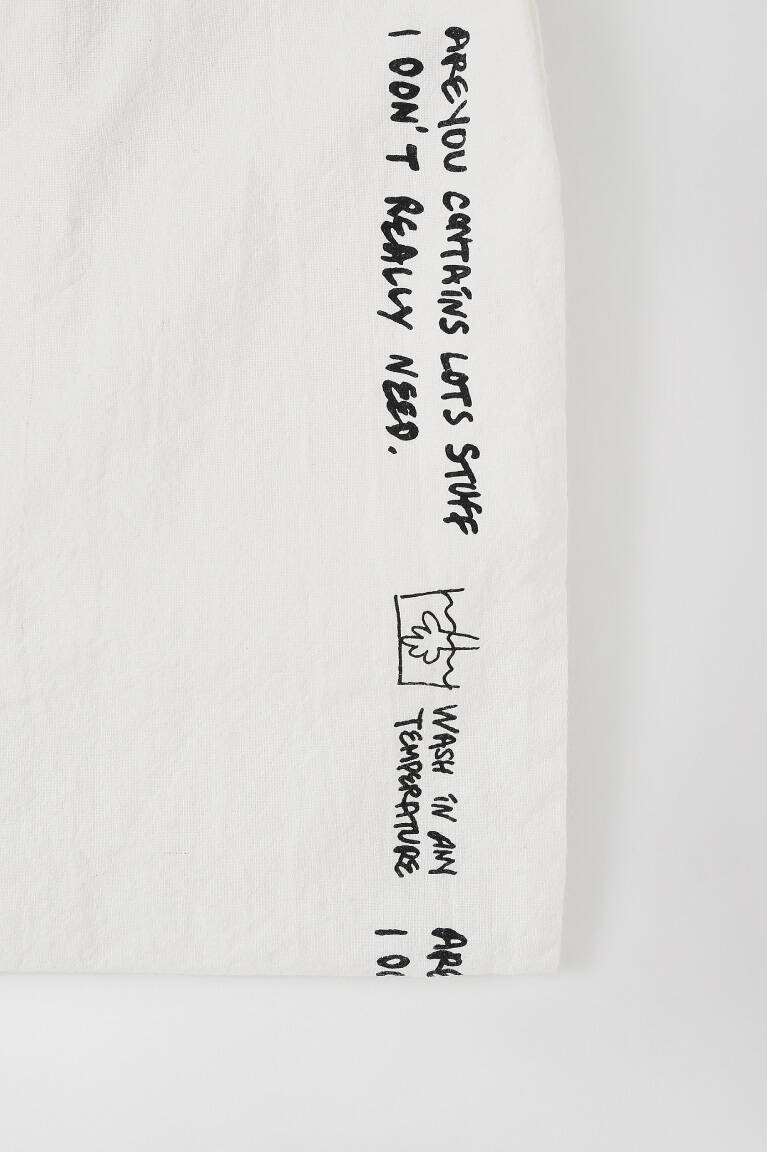 ARE YOU CONTAINS LOTS STUFF
I DON'T REALLY NEED.
WASH IN ANY
TEMPERATURE
ARE
I DO